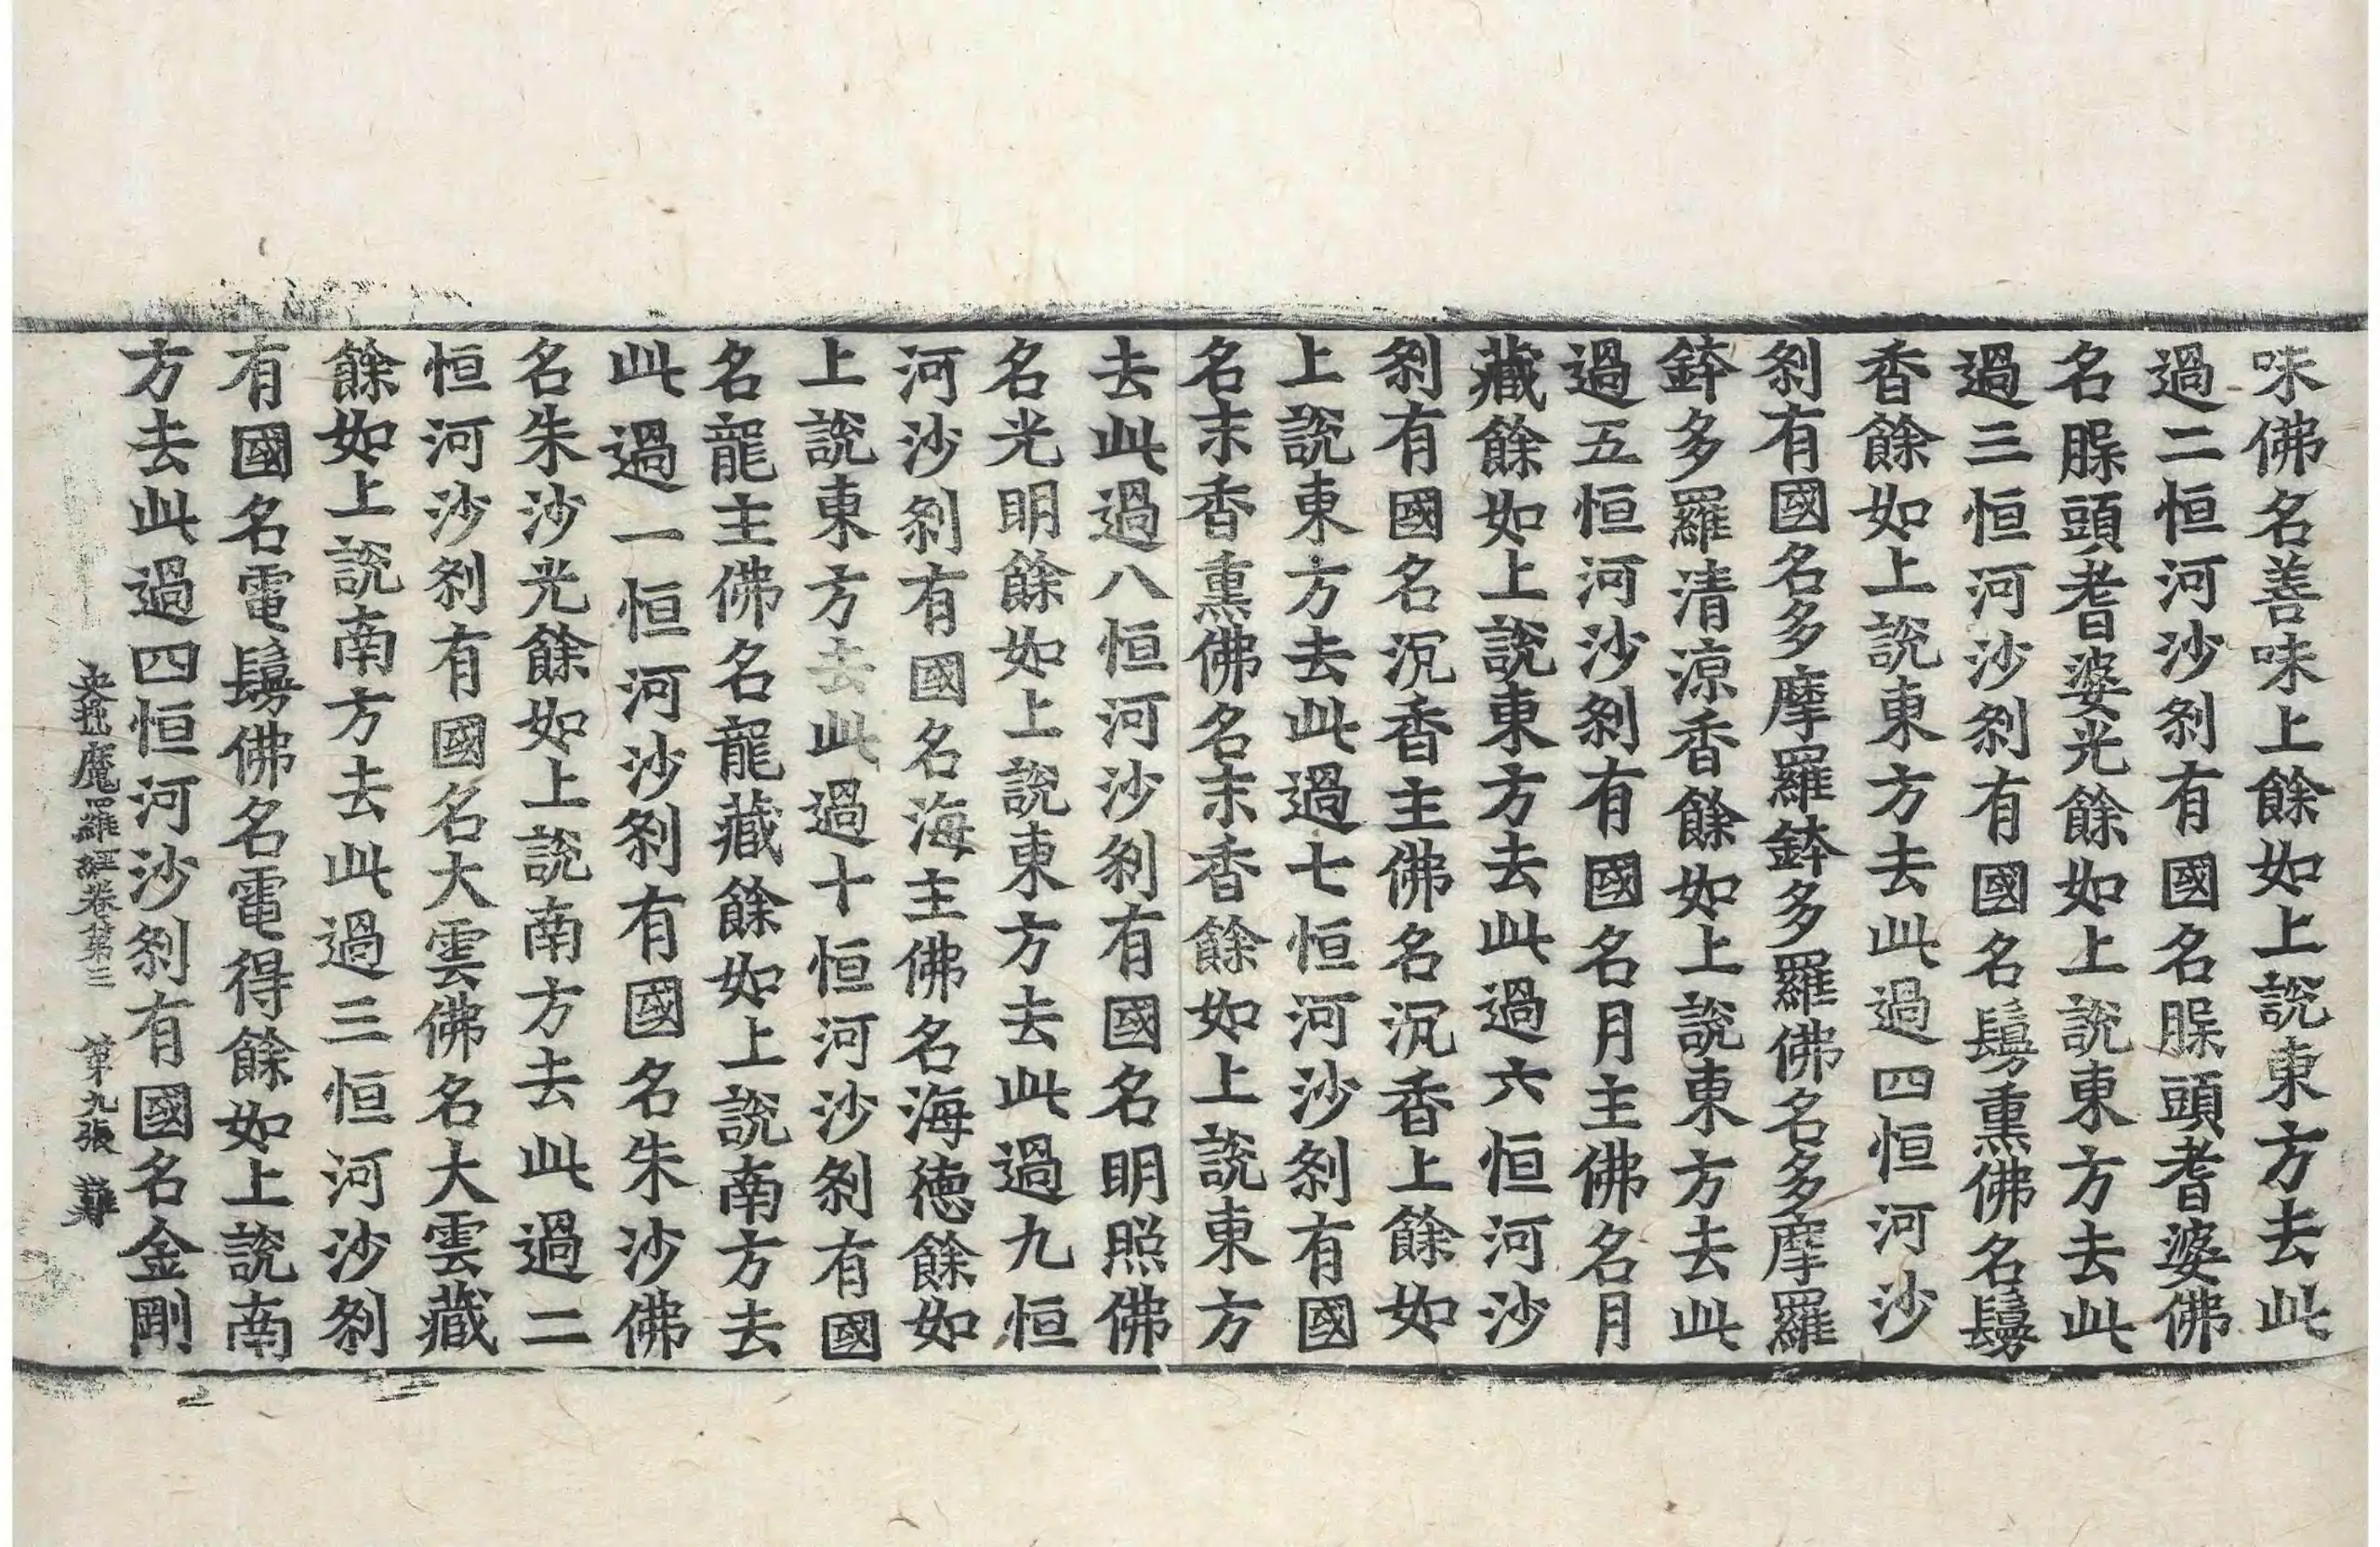 味佛名善味上餘如上說東方去此
過二恒河沙刹有國名䐗頭耆婆佛
名䐗頭耆婆光餘如上說東方去此
過三恒河沙刹有國名鬘熏佛名鬘
香餘如上說東方去此過四恒河沙
刹有國名多摩羅鉢多羅佛名多摩羅
鉢多羅清涼香餘如上說東方去此
過五恒河沙刹有國名月主佛名月
藏餘如上說東方去此過六恒河沙
刹有國名沉香主佛名沉香上餘如
上說東方去此過七恒河沙刹有國
名末香熏佛名末香餘如上說東方
去此過八恒河沙刹有國名明照佛
名光明餘如上說東方去此過九恒
河沙刹有國名海主佛名海德餘如
上說東方去此過十恒河沙刹有國
名龍主佛名龍藏餘如上說南方去
此過一恒河沙刹有國名朱沙佛
名朱沙光餘如上說南方去此過二
恒河沙刹有國名大雲佛名大雲藏
餘如上說南方去此過三恒河沙刹
有國名電鬘佛名電得餘如上說南
方去此過四恒河沙刹有國名金剛
央掘魔羅經卷第三 第九張